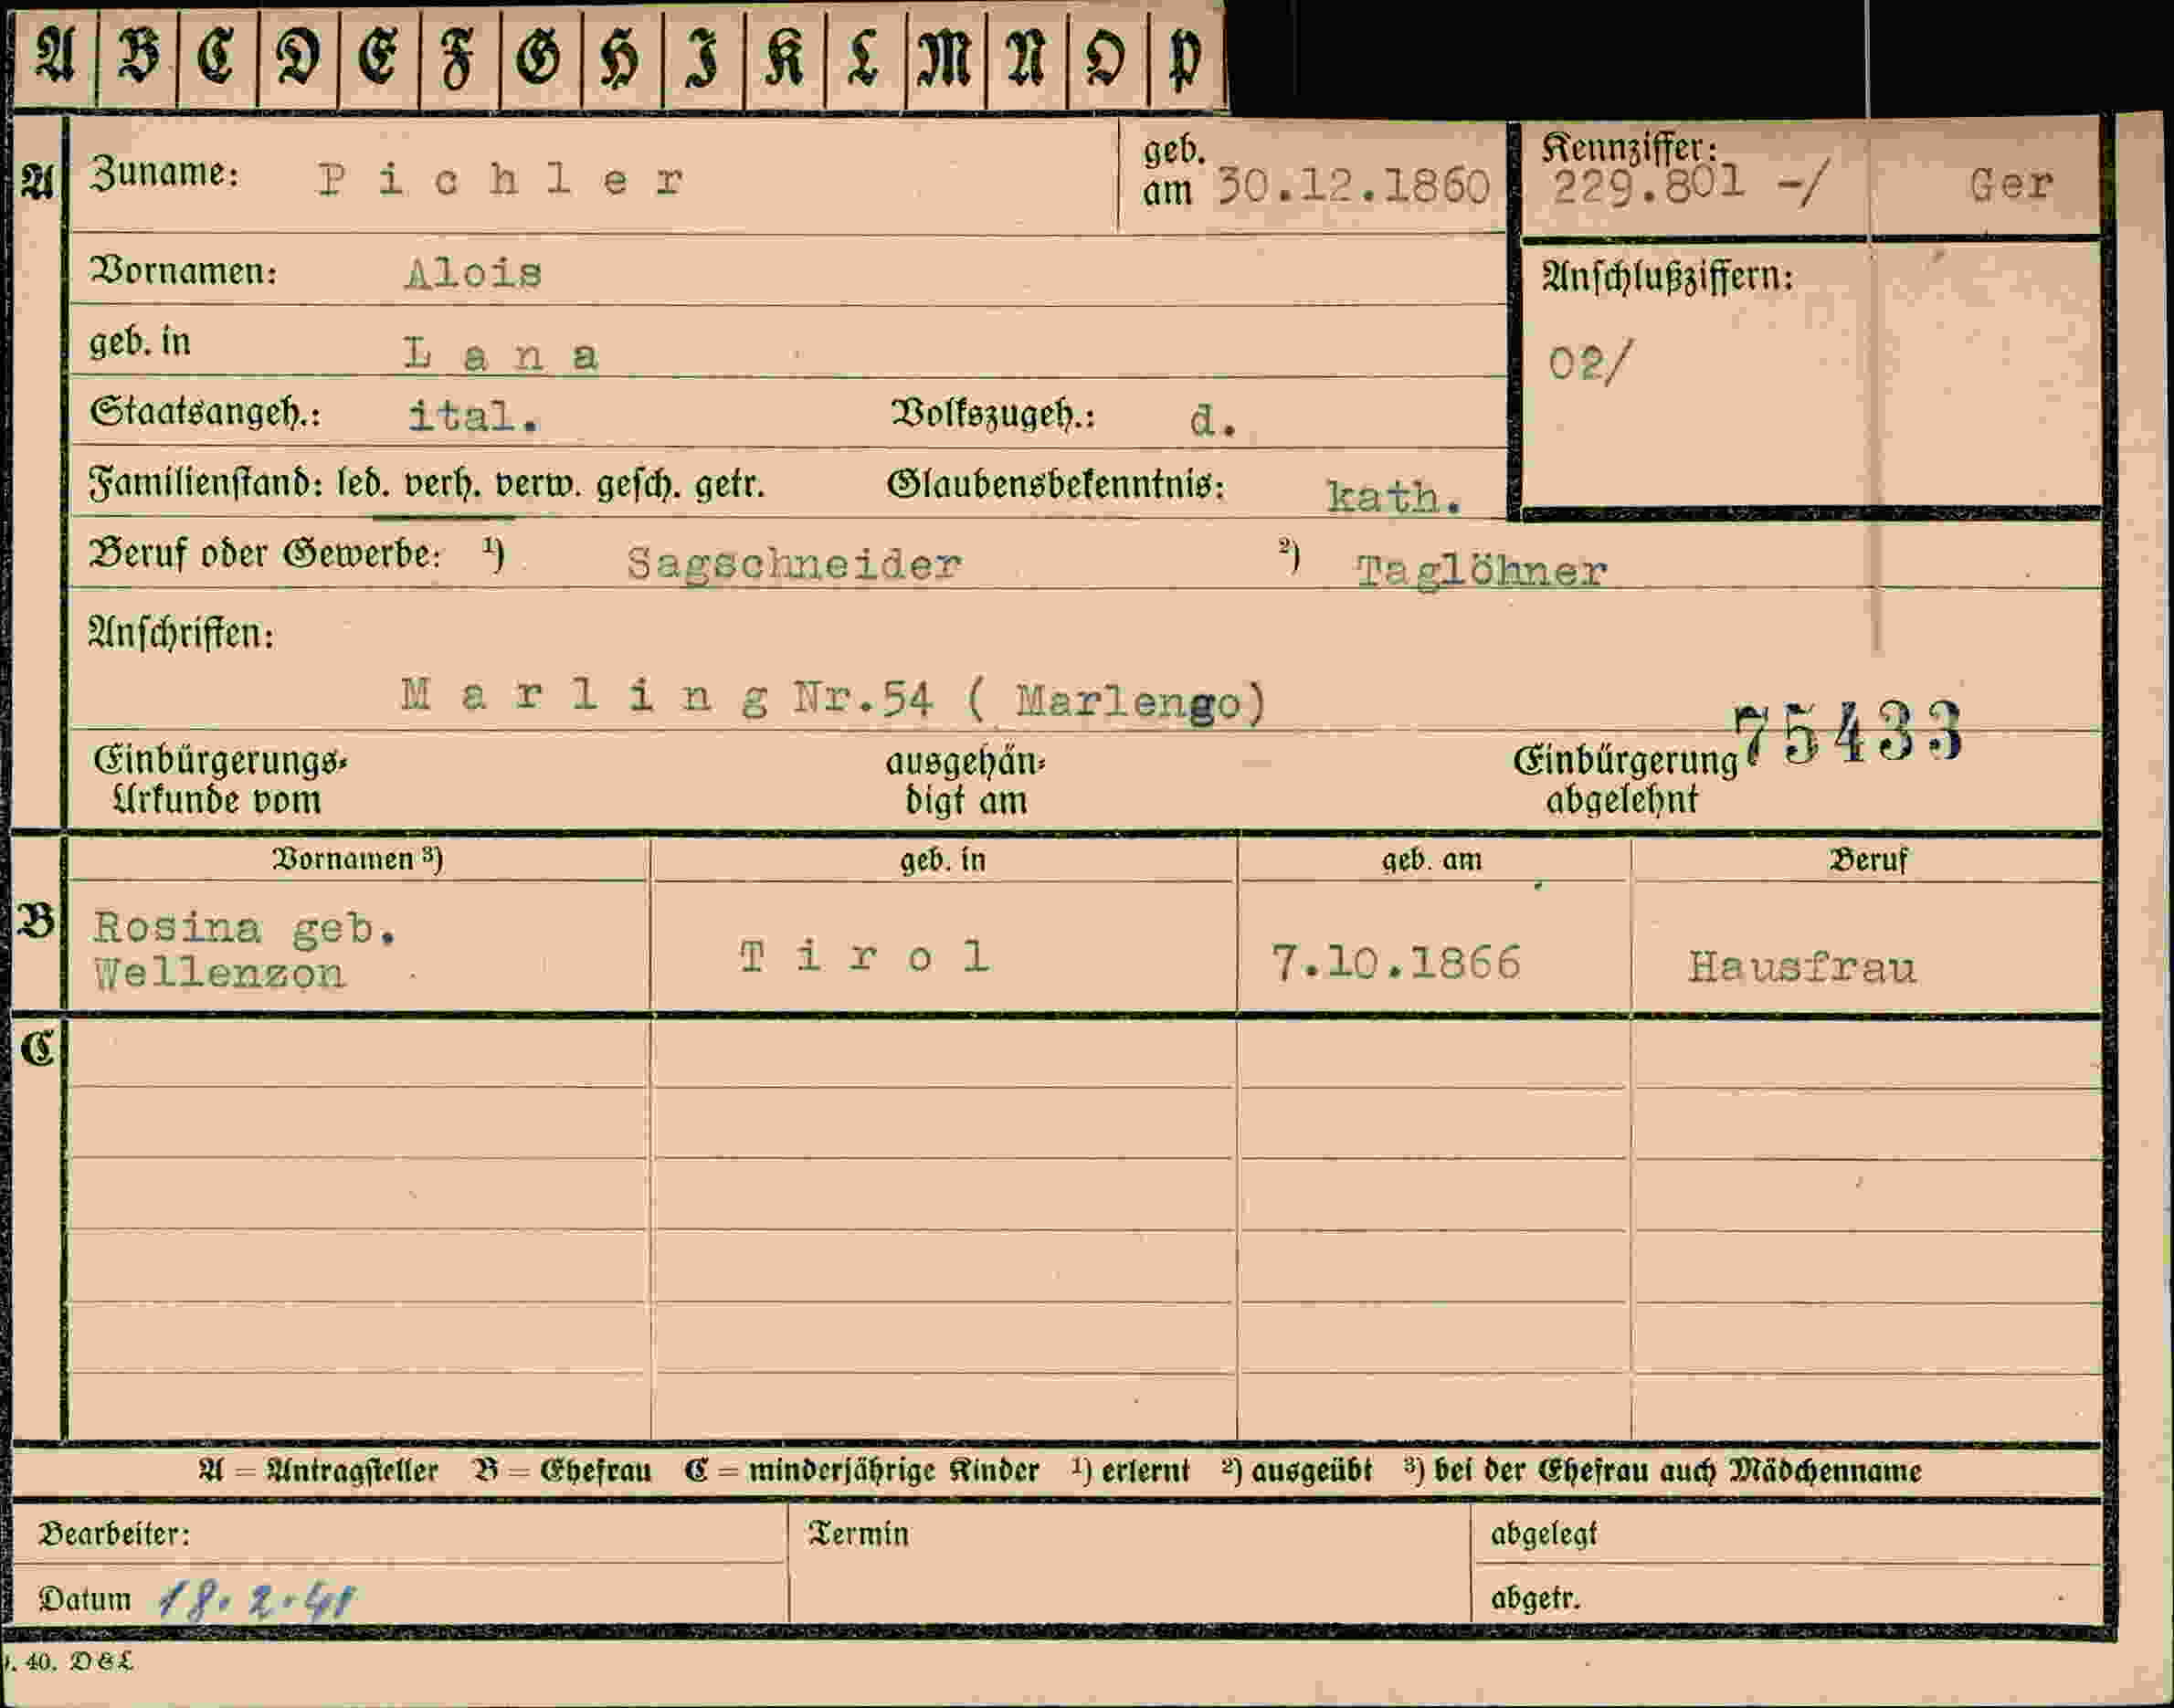 A B C D E F G H I K L M N O P
A Zuname: Pichler geb. am 30.12.1860 Kennziffer: 229.801 -/ Ger
Vornamen: Alois Anschlußziffern:
geb. in Lana 02/
Staatsangeh.: ital. Volkszugeh.: d.
Familienstand: led. verh. verw. gesch. getr. Glaubensbekenntnis: kath.
Beruf oder Gewerbe: 1) Sagschneider 2) Taglöhner
Anschriften:
Marling Nr.54 ( Marlengo)
75433
Einbürgerungs- ausgehän- Einbürgerung
Urkunde vom digt am abgelehnt
Vornamen 3) geb. in geb. am Beruf
B Rosina geb.
Wellenzon Tirol 7.10.1866 Hausfrau
C
A = Antragsteller B = Ehefrau C = minderjährige Kinder 1) erlernt 2) ausgeübt 3) bei der Ehefrau auch Mädchenname
Bearbeiter: Termin abgelegt
Datum 18.2.41 abgetr.
40. D & L